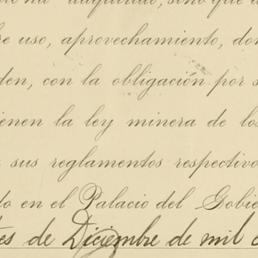 adquirido, sino que
uso, aprovechamiento, do
den, con la obligación por s
ienen la ley minera de los
sus reglamentos respectivo
do en el Palacio del Gobie
es de Diciembre de mil